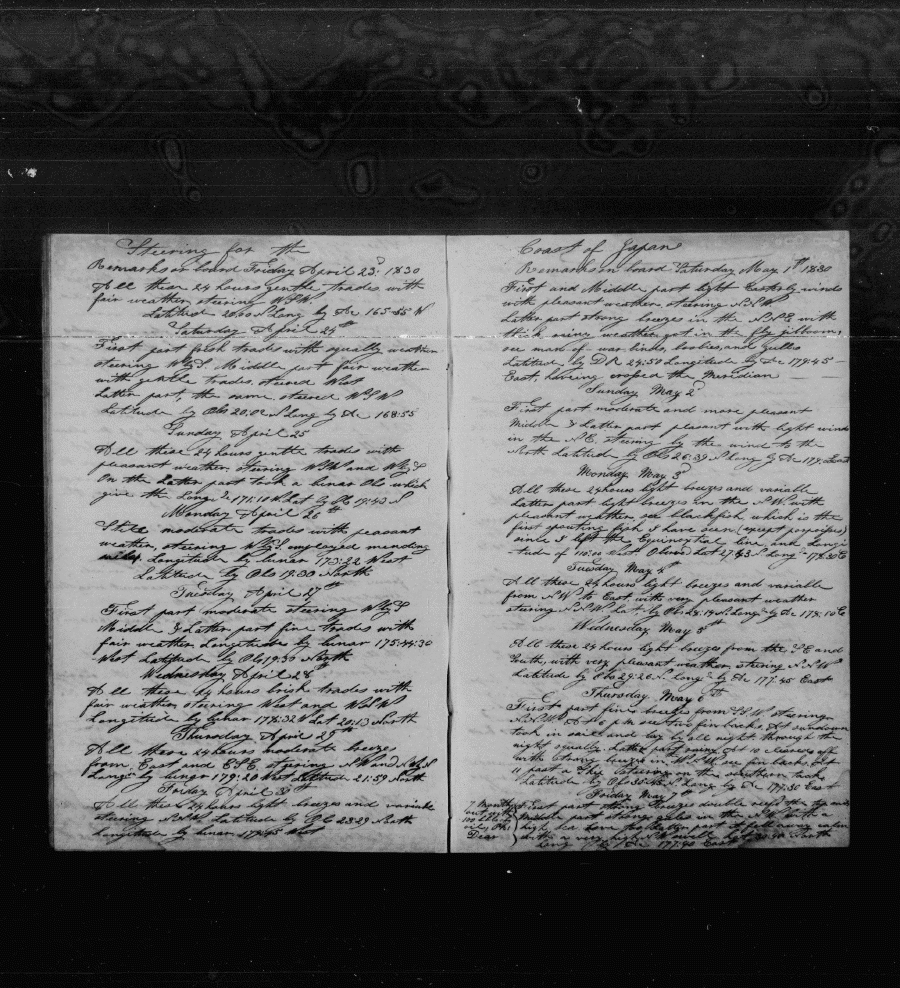 Steering for the
Remarks on board Friday April 23d 1830
All these 24 hours gentle trades with
fair weather steering WSW
Latitude 20:00 N Long by Ac 165:55 W
Saturday April 24th
First part fresh trades with squally weather
steering WbyS. Middle part fair weather
with gentle trades, steered West
Latter part, the same, steered WSW
Latitude by Obs 20:02 N Long by Ac 168:55
Sunday April 25
All these 24 hours gentle trades with
pleasant weather, steering WSW and WbyS
On the Latter part took a lunar Obs which
give the Longde 171:10 W Lat by Obs 19:43 N
Monday April 26th
These moderate trades with peasant
weather, steering WbyS. employed mending
Longitude by lunar 173:22 West
Latitude by Obs 19:30 North
Tuesday April 27th
First part moderate steering WbyS
Middle & Latter part fine trades with
fair weather Longitude by lunar 175:44:30
West Latitude by Obs 19:33 North
Wednesday April 28
All these 24 hours brisk trades with
fair weather steering West and WNW
Longitude by lunar 178:32 W Lat 20:13 North
Thursday April 29th
All these 24 hours moderate breezes
from East and ESE steering NW and
Longde by lunar 179:20 West Latitude 21:59 North
Friday April 30th
All these 24 hours light breezes and variable
steering NNW Latitude by Obs 23:29 North
Longitude by lunar 179:45 West
Coast of Japan
Remarks on board Saturday May 1st 1830
First and Middle part light Easterly winds
with pleasant weather steering NNW
Latter part strong breezes in the NNE with
thick rainy weather got in the fly jibboom,
see man of war birds, boobies, and gulls
Latitude by DR 24:50 Longitude by Ac 179:45
East, having crossed the Meridian
Sunday May 2d
First part moderate and more pleasant
Middle & Latter part pleasant with light winds
in the NE. steering by the wind to the
North Latitude by Obs 26:39 N Long by Ac 179: East
Monday May 3d
All these 24 hours light breezes and variable
Latter part light breezes in the NW with
pleasant weather see blackfish which is the
first spouting fish I have seen (except porpoises)
since I left the Equinoctial line, and Longi-
tude of 110:00 West Observd Lat 27:43 N Longde 178:30 E
Tuesday May 4th
All these 24 hours light breezes and variable
from NW to East, with very pleasant weather
steering NNW, Lat by Obs 28:19 N Longde by Ac 178:10 E
Wednesday May 5th
All these 24 hours light breezes from the SE and
South, with very pleasant weather, steering NNW
Latitude by Obs 29:20 N Longde by Ac 177:45 East
Thursday May 6th
First part fine breezes from SSW. steering
NNW. At 5 pm see two fin backs. At sundown
took in sail and lay by all night, through the
night squally Latter part rainy At 10 cleared off
with strong breezes in WSW see fin backs. At
11 past a Ship steering on the southern tack
Latitude by Obs 30:45 N Long by Ac 177:30 East
Friday May 7
7 Months
out with
100 bbls of
oily Oh!
Dear
First part strong breezes double reefd the topsails
Middle part strong gales in the NW with a
high sea Latter part
with a very high NW swell North
Long by Ac 177:40 East